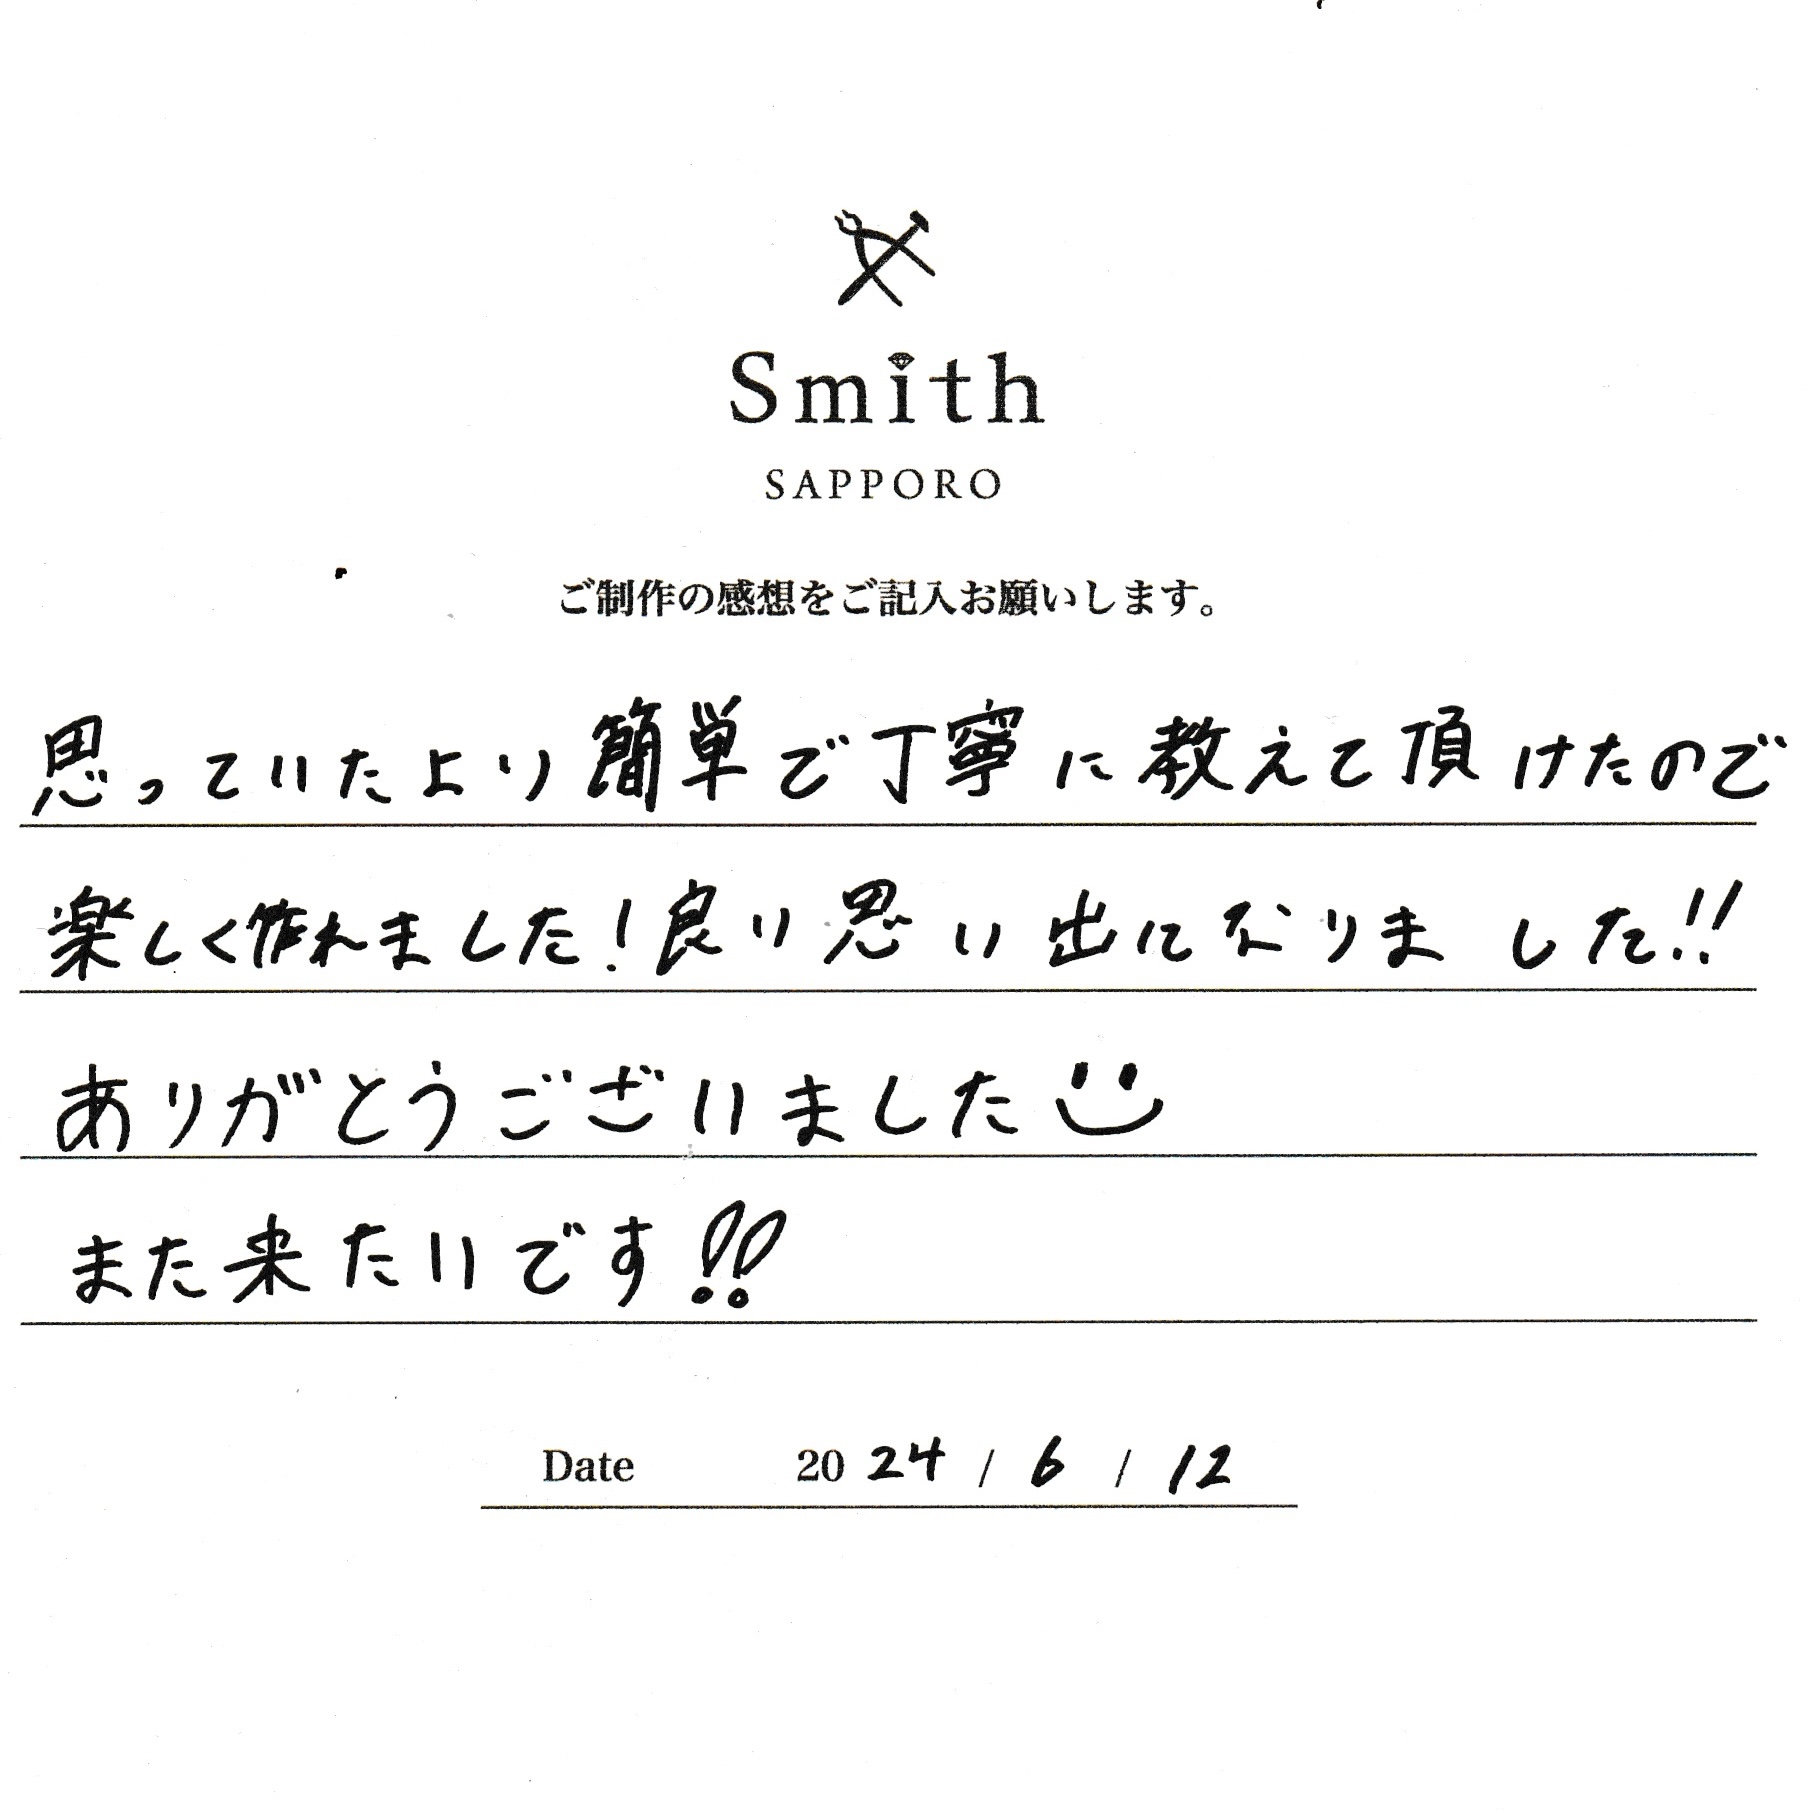 Smith
SAPPORO
ご制作の感想をご記入お願いします。
思っていたより簡単で丁寧に教えて頂けたので
楽しく作れました!良い思い出になりました!!
ありがとうございました
また来たいです!!
Date 2024 / 6 / 12